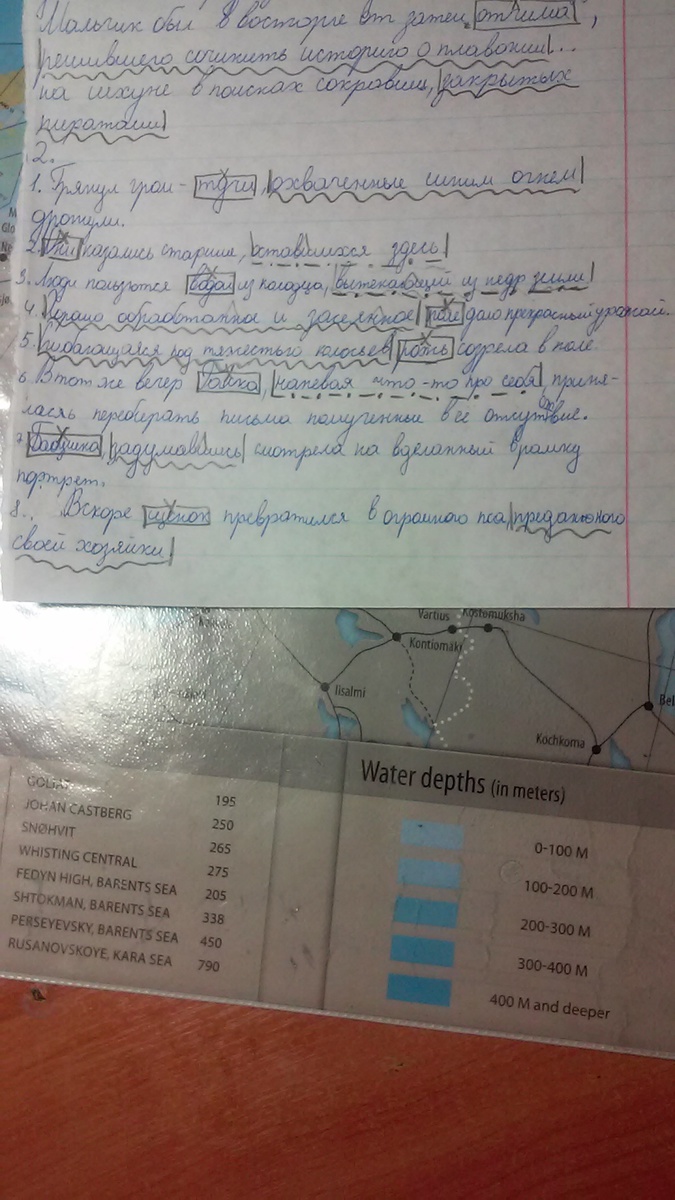 Мальчик был в восторге от затеи отчима,
решившего сочинить историю о плавании...
на шхуне в поисках сокровищ, закрытых
пиратами
2.
1. Грянул гром - тучи, охваченные синим огнем
дрогнули.
2. Они казались старше, оставшихся здесь
3. Люди пользуются водой из колодца, вытекающий из недр земли
4. Хорошо обработанное и засеянное поле дало прекрасный урожай.
5. Сгибающаяся под тяжестью колосьев рожь созрела в поле
6. В тот же вечер бабка, напевая что-то про себя, приня-
лась переберать письма полученные в её отсутствие.
7. Бабушка задумавшись смотрела на вделанный в рамку
портрет.
8. Вскоре щенок превратился в огромного пса, преданного
своей хозяйки
Vartius
Kostomuksha
Kontiomäki
Iisalmi
Kochkoma
Bel
GOLIAT 195
JOHAN CASTBERG 250
SNØHVIT 265
WHISTING CENTRAL 275
FEDYN HIGH, BARENTS SEA 205
SHTOKMAN, BARENTS SEA 338
PERSEYEVSKY, BARENTS SEA 450
RUSANOVSKOYE, KARA SEA 790
Water depths (in meters)
0-100 M
100-200 M
200-300 M
300-400 M
400 M and deeper